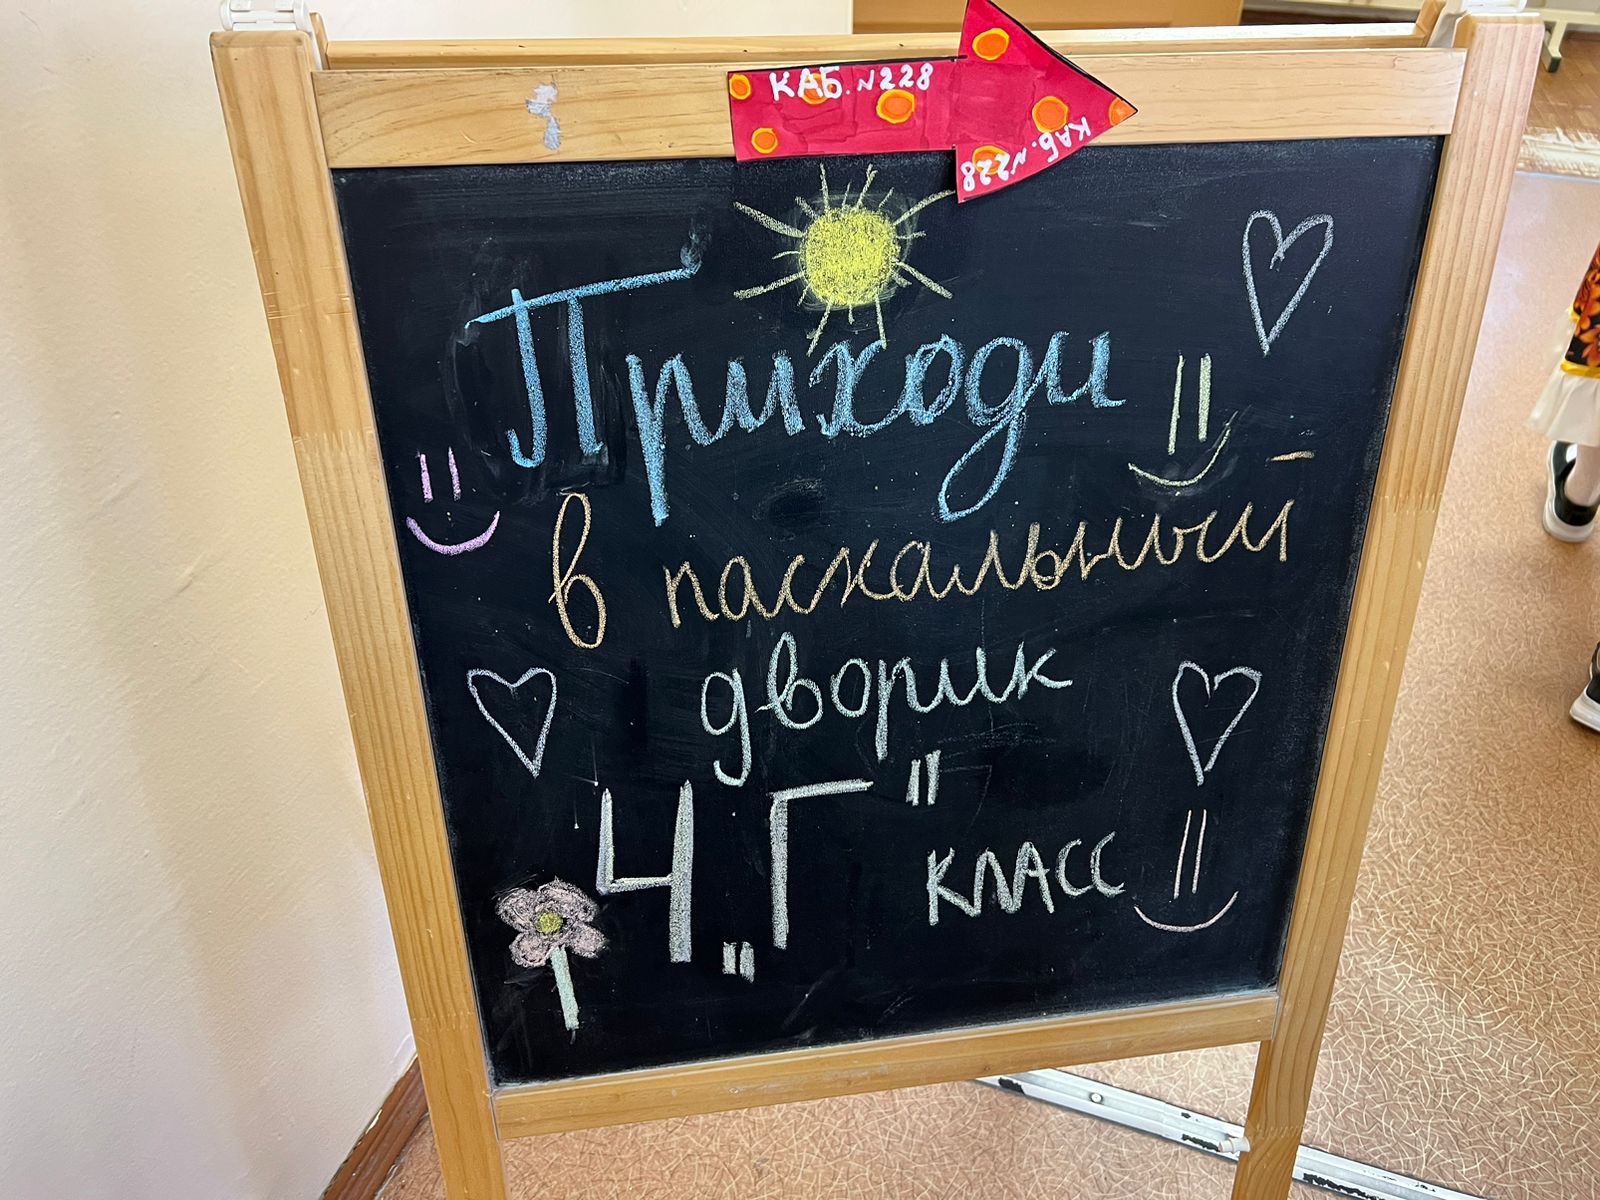 КАБ. №228
КАБ. №228
Приходи
в пасхальный
дворик
4 „Г"
класс